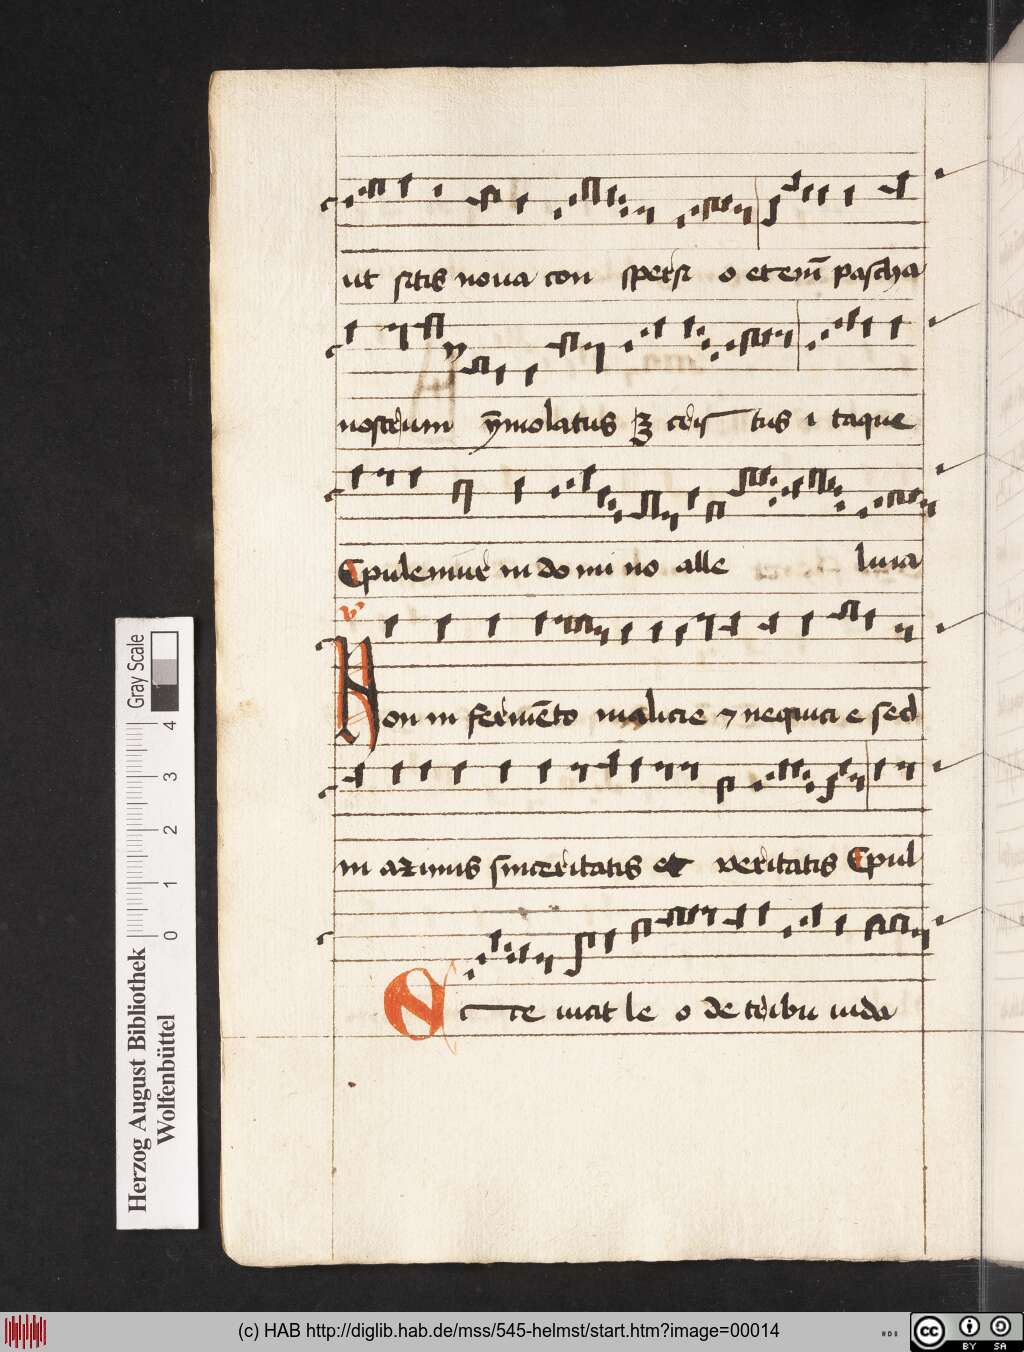 ut sitis noua con spersi o etem̄ pascha
nostrum ȳmolatus ꝫ cris tus i taque
Epulemur in do mi no alle luia
v
Non in fermēto malicie ⁊ nequici e sed
in azimis sinceritatis et veritatis Epul
Ecce uicit le o de tribu iuda
Gray Scale
4
3
2
1
0
Herzog August Bibliothek
Wolfenbüttel
(c) HAB http://diglib.hab.de/mss/545-helmst/start.htm?image=00014
cc
BY SA